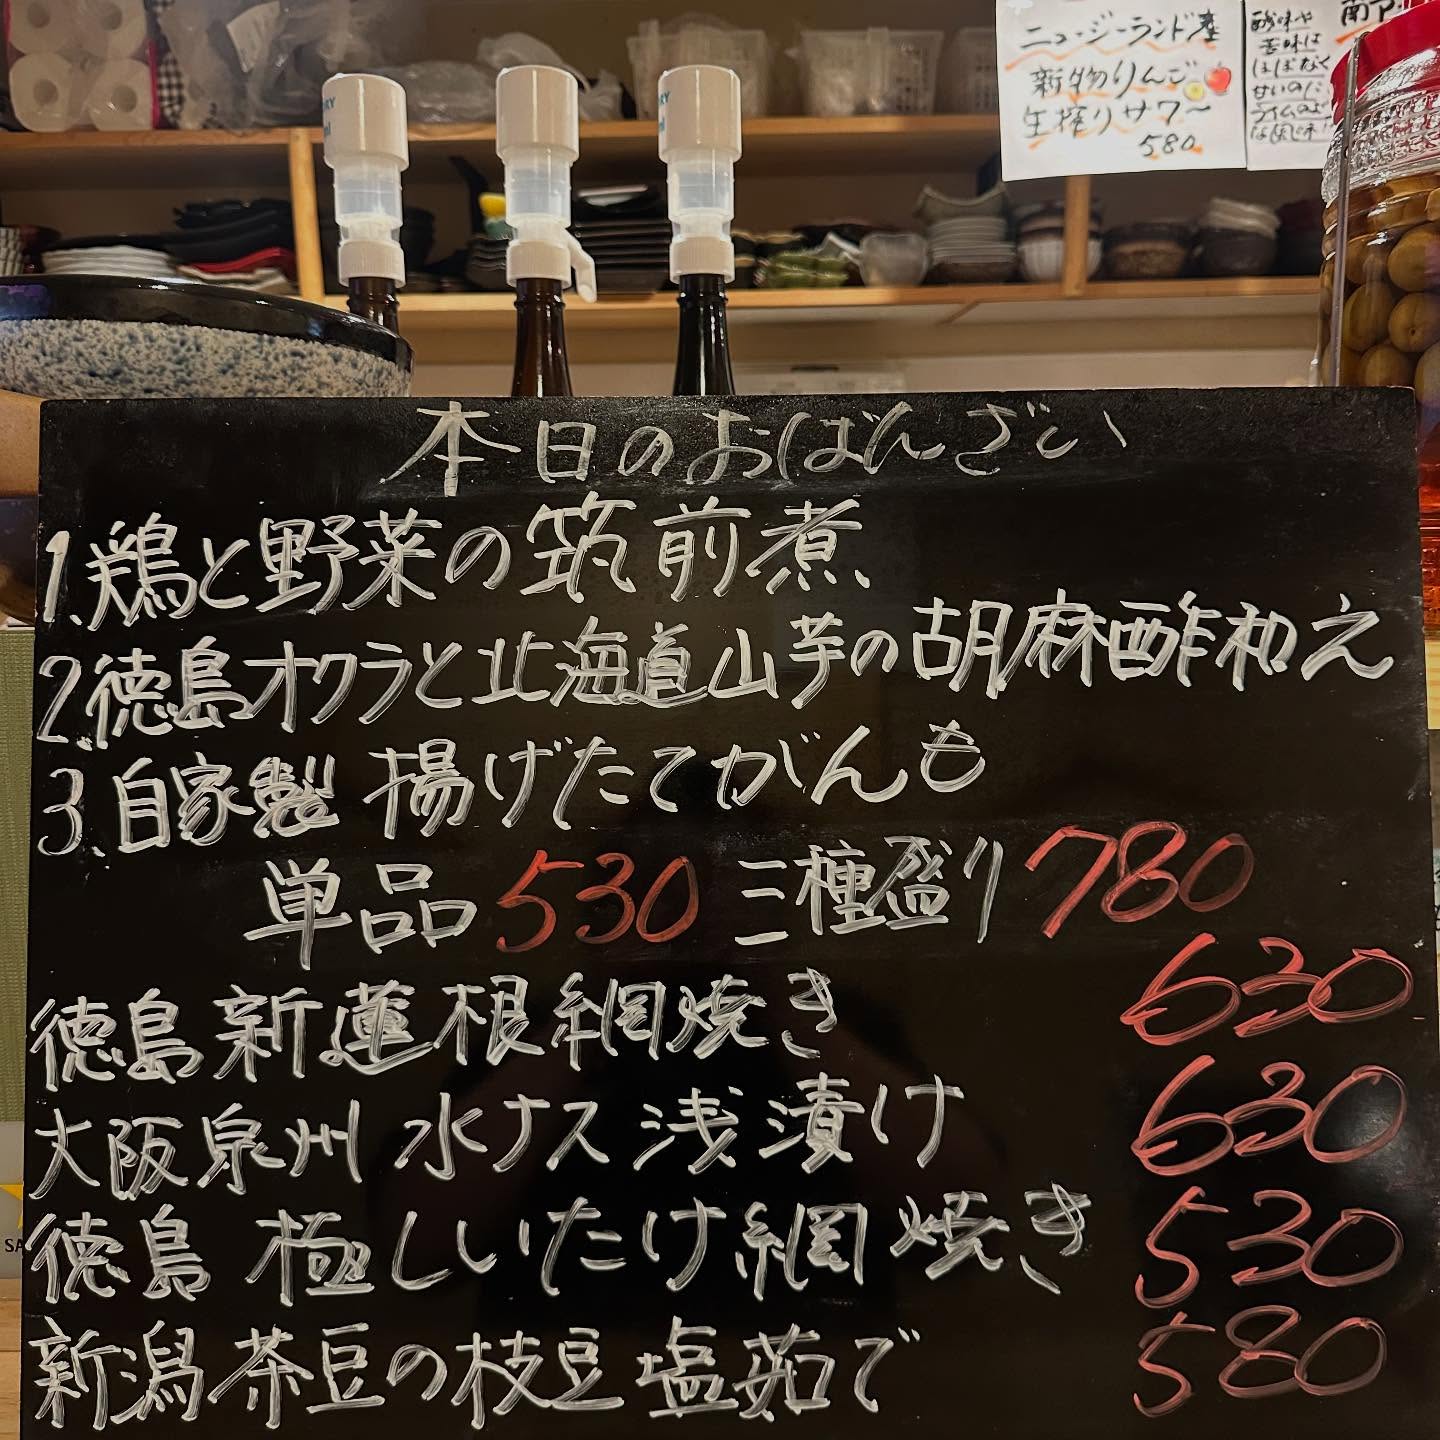 ニュージーランド産
新物りんご
生搾りサワー
580
酸味や
苦味は
ほばなく
甘いのに
本日のおばんざい
1.鶏と野菜の筑前煮
2.徳島オクラと北海道山芋の胡麻酢和え
3.自家製 揚げたてがんも
単品530 三種盛り780
徳島新蓮根網焼き 630
大阪泉州 水ナス 浅漬け 630
徳島 極しいたけ網焼き 530
新潟茶豆の枝豆塩茹で 580